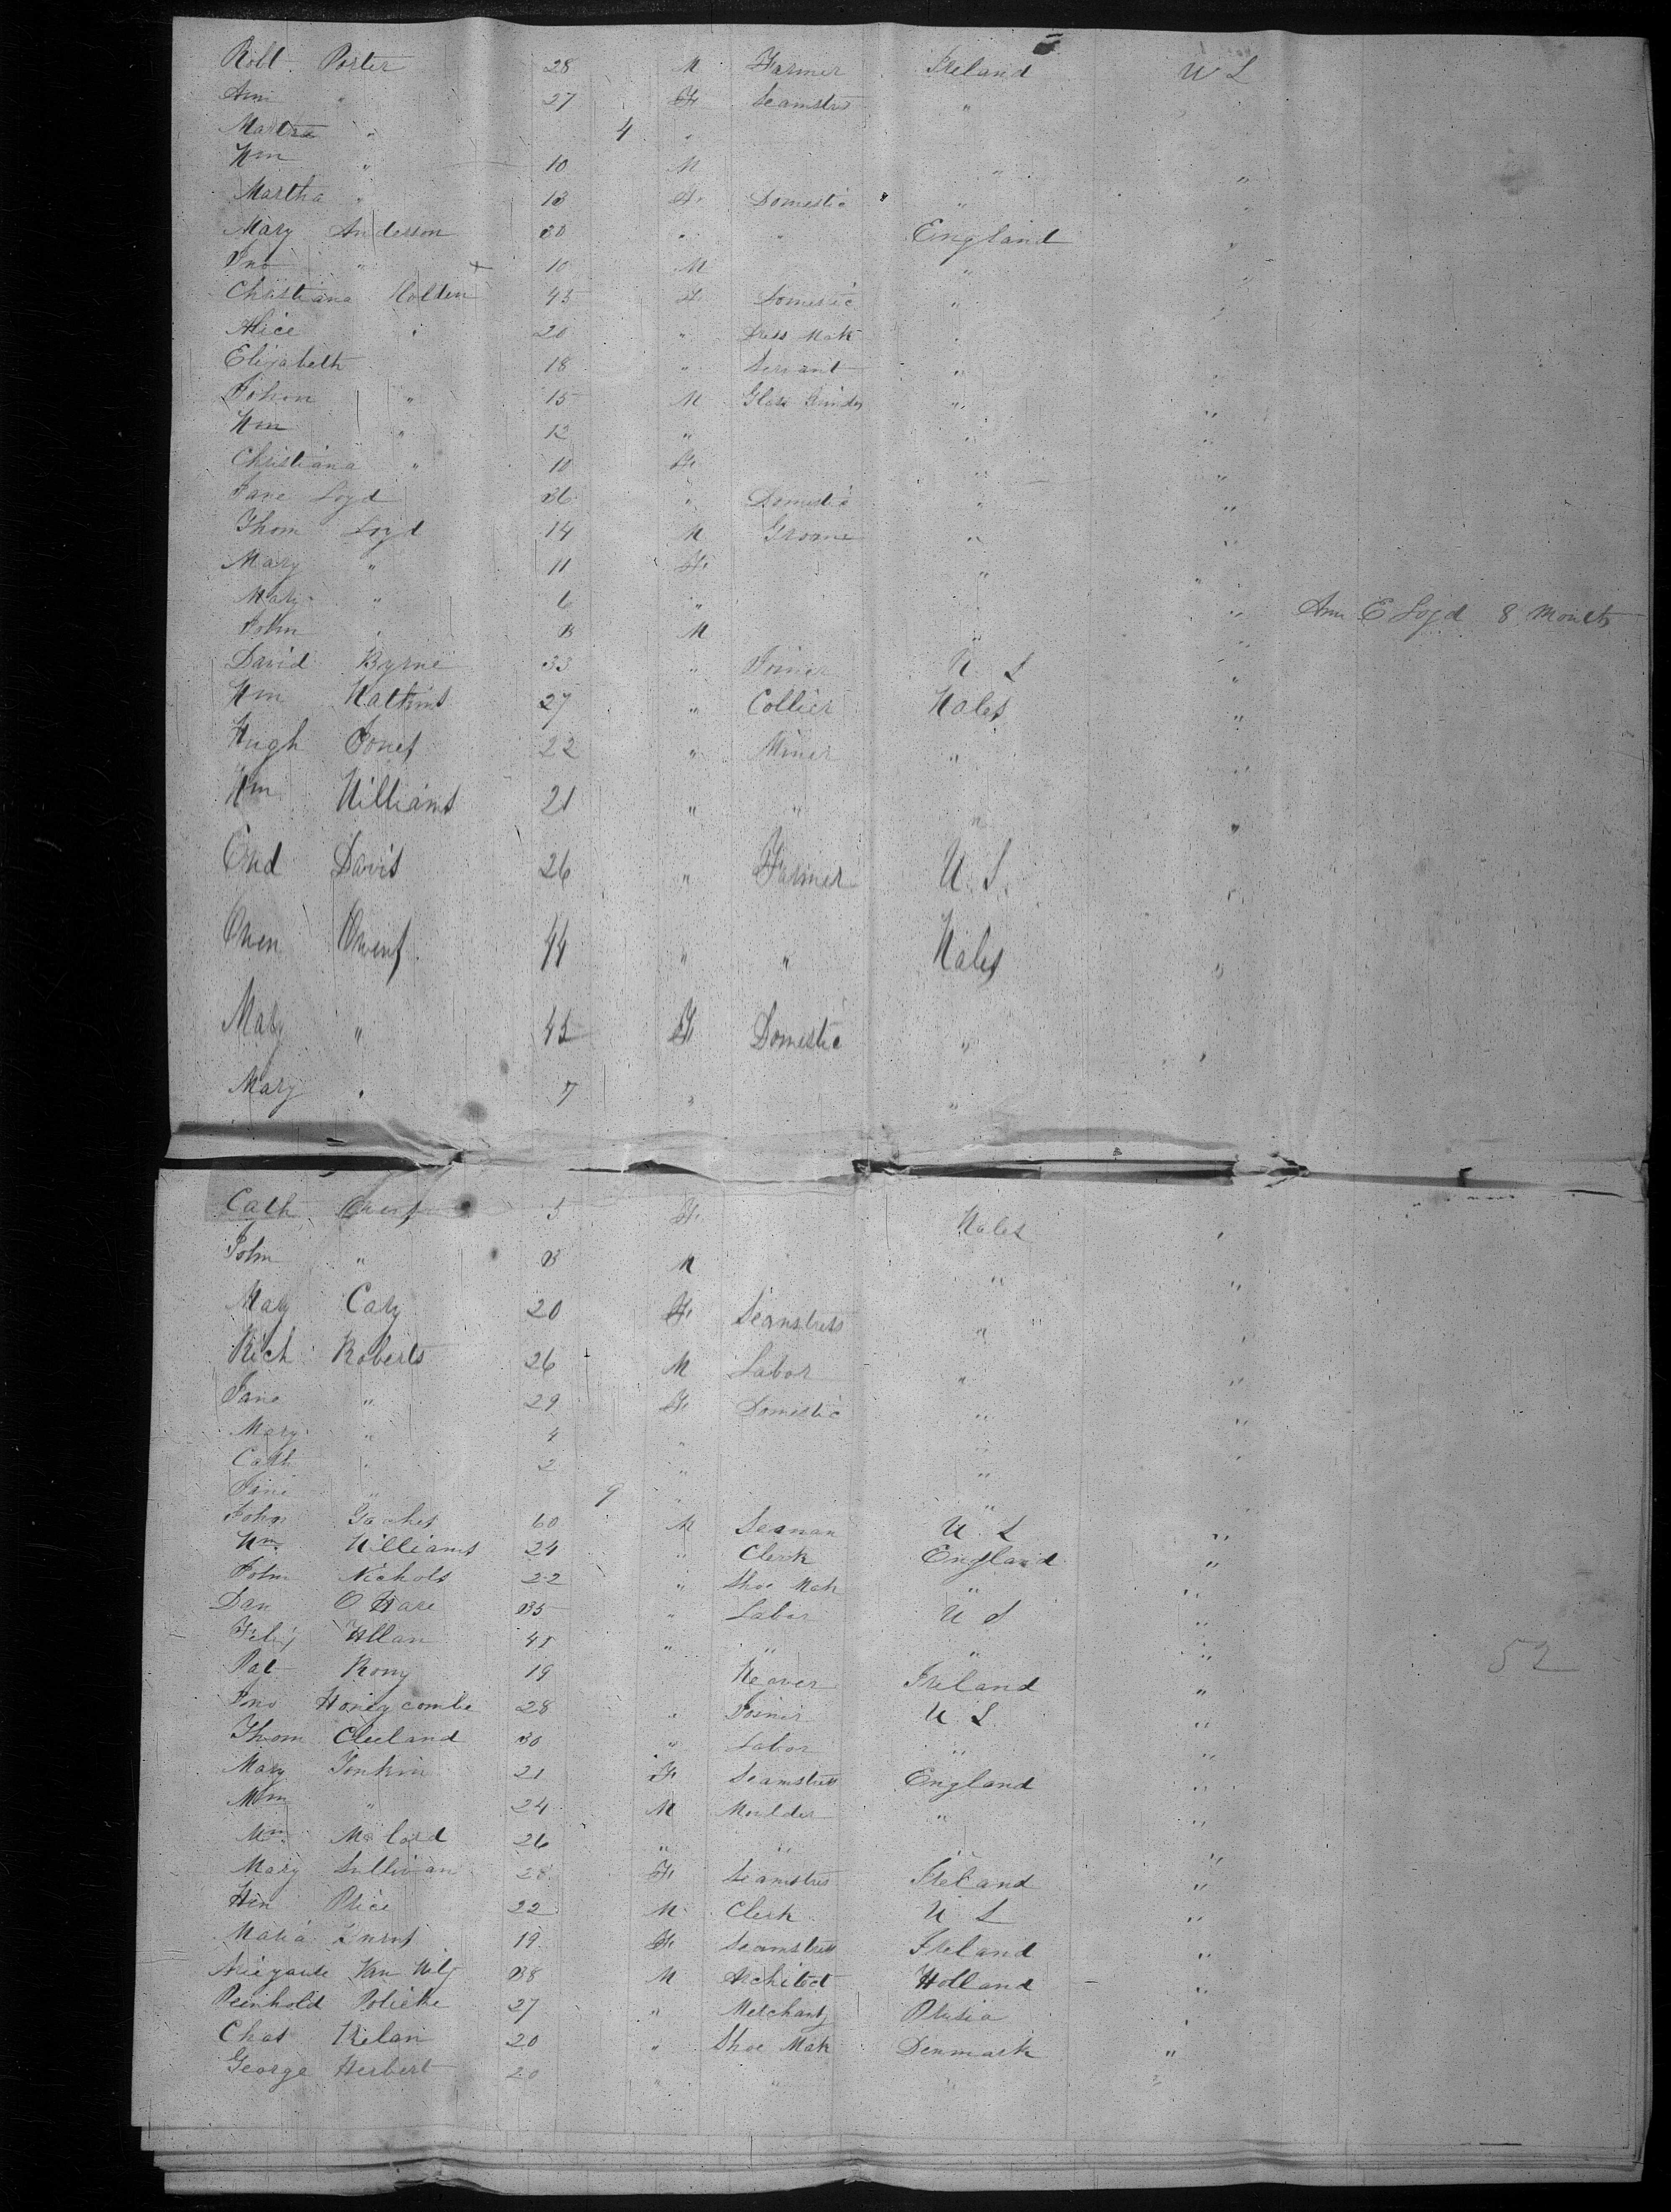 Robt. Porter 28 M Farmer Ireland U S
Ann " 27 F. Seamstrs "
Martha " 4 "
Wm " 10 M " "
Martha " 13 F. Domestic " "
Mary Anderson 30 " " England "
Jno " 10 M " "
Christiana Holden 45 F. Domestic " "
Alice " 20 " Dress Mak "
Elizabeth 18 " Servant " "
John " 15 M Glass Grinder " "
Wm " 12 " " "
Christiana " 10 F. " "
Jane Loyd 36 " Domestic " "
Thom Loyd 14 M Groome " "
Mary " 11 F. " "
Mary " 6 " " Ann E Loyd 8 Months
John " 3 M " "
David Byrne 33 " Joiner U. S "
Wm Watkins 27 " Collier Wales "
Hugh Jones 22 " Miner " "
Wm Williams 21 " " " "
Davis 26 " Farmer U. S. "
Owen Owens 44 " " Wales "
Mary " 45 F. Domestic " "
Mary " 7 " "
Cath Owens 5 F. Wales "
John " 3 M " "
Mary Cary 20 F. Seamstress " "
Rich Roberts 26 M Labor " "
Jane " 29 F. Domestic " "
Mary " 4 " " "
Cath " 2 " "
Jane " 9 " " "
John 60 M Seaman U. S "
Wm. Williams 24 " Clerk England "
John Nichols 22 " Shoe Mak " "
Dan O Hare 35 " Labor U S "
Allan 45 " " " "
Pat 19 Weaver Ireland "
Jno Honeycombe 28 " Joiner U S. "
Thom Cleeland 30 " Labor " "
Mary Jonkin 21 F. Seamstress England "
Wm " 24 M Moulder " "
Wm. 26 " " "
Mary Sullivan 28 F. Seamstres Ireland "
Price 22 M Clerk U S "
Maria 19 F. Seamstress Ireland "
Van 38 M Architect Holland "
Reinhold 27 " Merchant Prusia "
Chas 20 " Shoe Mak Denmark "
George Herbert 20 " " " "
52